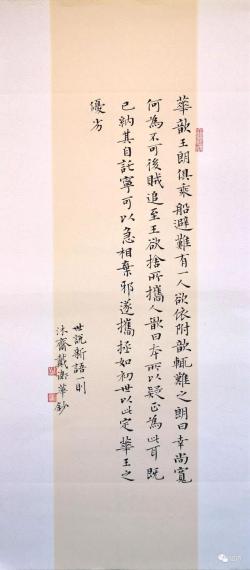 華歆王朗俱乘船避難有一人欲依附歆輒難之朗曰幸尚寬
何為不可後賊追至王欲捨所攜人歆曰本所以疑正為此耳既
已納其自託寧可以急相棄邪遂攜拯如初世以此定華王之
優劣
世說新語一則
沐齋戴衛華鈔